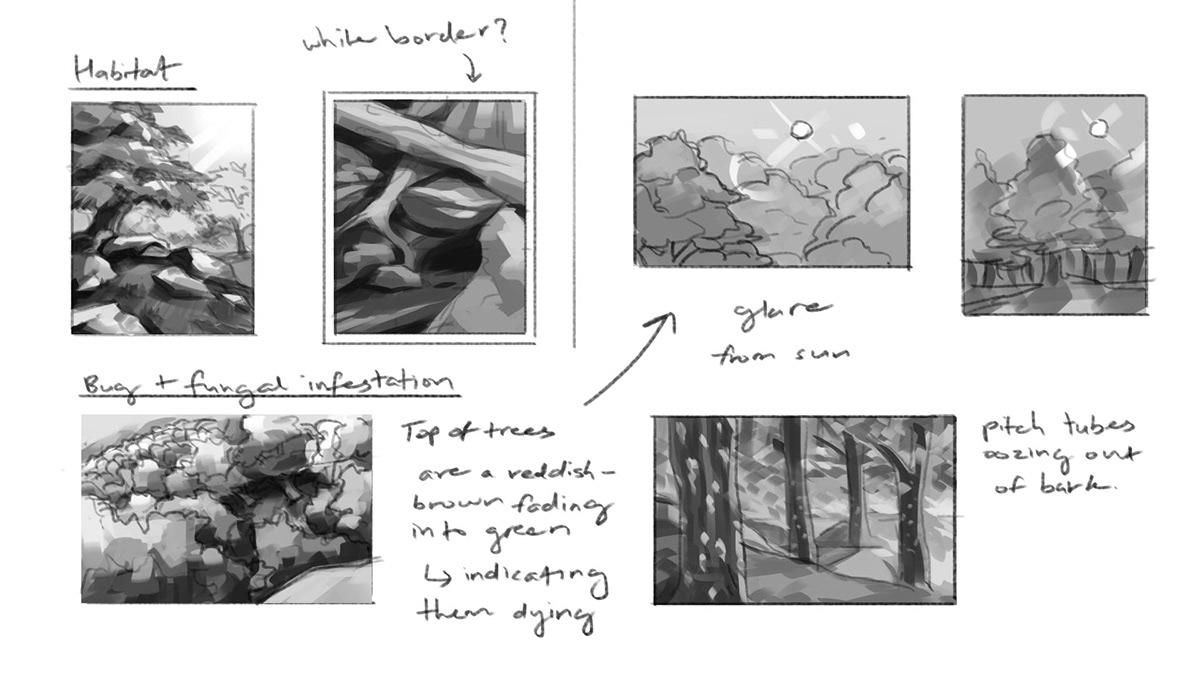 white border?
Habitat
glare
from sun
Bug + fungal infestation
Top of trees
are a reddish-
brown fading
into green
↳ indicating
them dying
pitch tubes
oozing out
of bark.